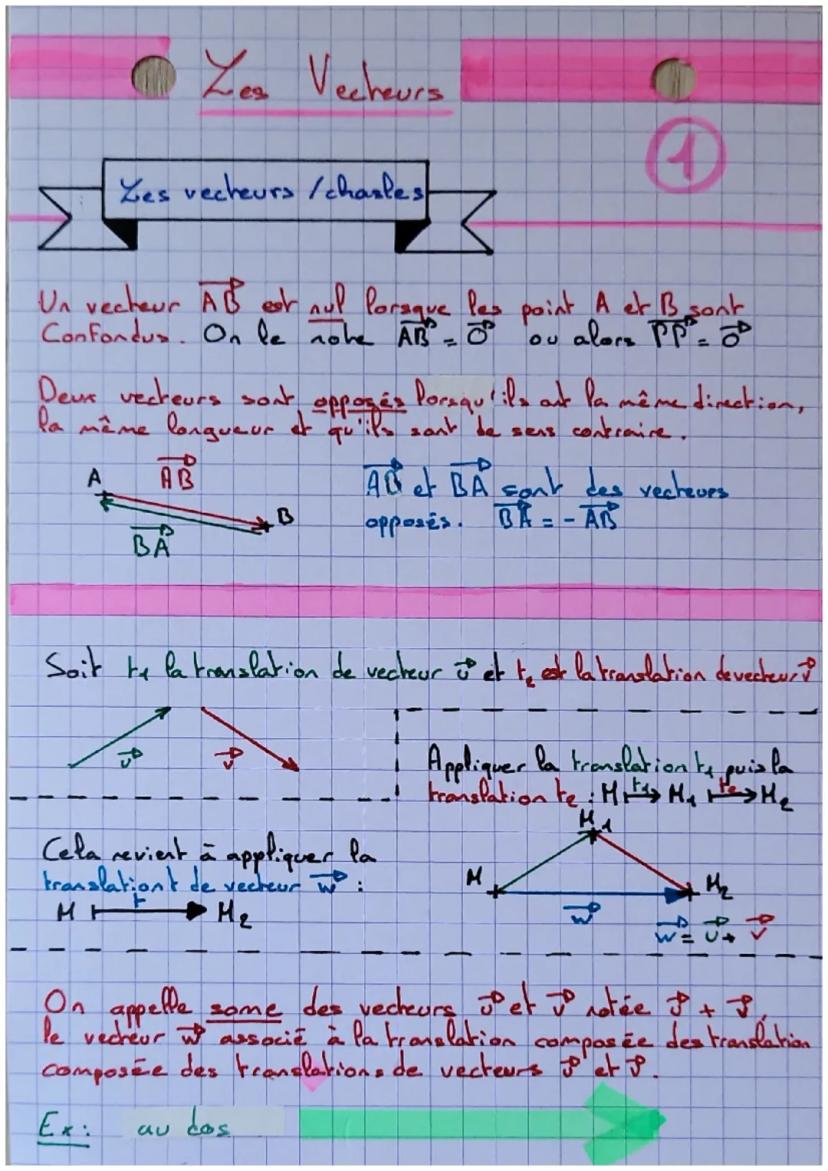 Les Vecteurs
1
Les vecteurs / chasles
Un vecteur AB est nul lorsque les point A et B sont
Confondus. On le note AB = 0 ou alors PP = 0
Deux vecteurs sont opposés lorsqu'ils ont la même direction,
la même longueur et qu'ils sont de sens contraire.
A AB B
BA
AB et BA sont des vecteurs
opposés. BA = - AB
Soit t1 la translation de vecteur u et t2 est la translation de vecteur v
u v
Appliquer la translation t1 puis la
translation t2 : M t1 M1 t2 M2
Cela revient à appliquer la
translation t de vecteur w :
M t M2
M M1 M2
w
w = u + v
On appelle some des vecteurs u et v notée u + v,
le vecteur w associé à la translation composée des translation
composée des translations de vecteurs u et v.
Ex: au dos